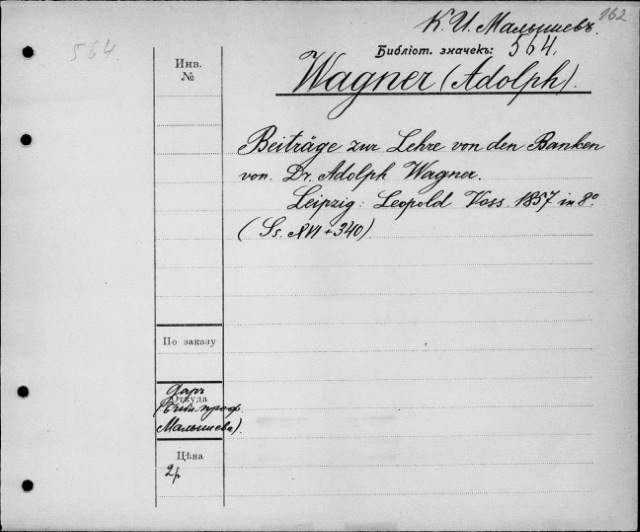 162
К. И. Малышевъ.
564
Библіот. значекъ: 564.
Инв.
№
Wagner (Adolph).
Beiträge zur Lehre von den Banken
von Dr. Adolph Wagner.
Leipzig: Leopold Voss. 1857 in 8°
(Ss. XVI + 340).
По заказу
Даръ
Откуда
(Библ. проф.
Малышева).
Цѣна
2 р.